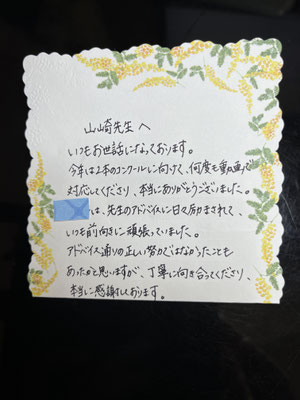 山崎先生へ
いつもお世話になっております。
今年は2本のコンクールに向けて、何度も動画で
対応してくださり、本当にありがとうございました。
は、先生のアドバイスに日々励まされて、
いつも前向きに頑張っていました。
アドバイス通りの正しい努力ではなかったことも
あったかと思いますが、丁寧に向き合ってくださり、
本当に感謝しております。